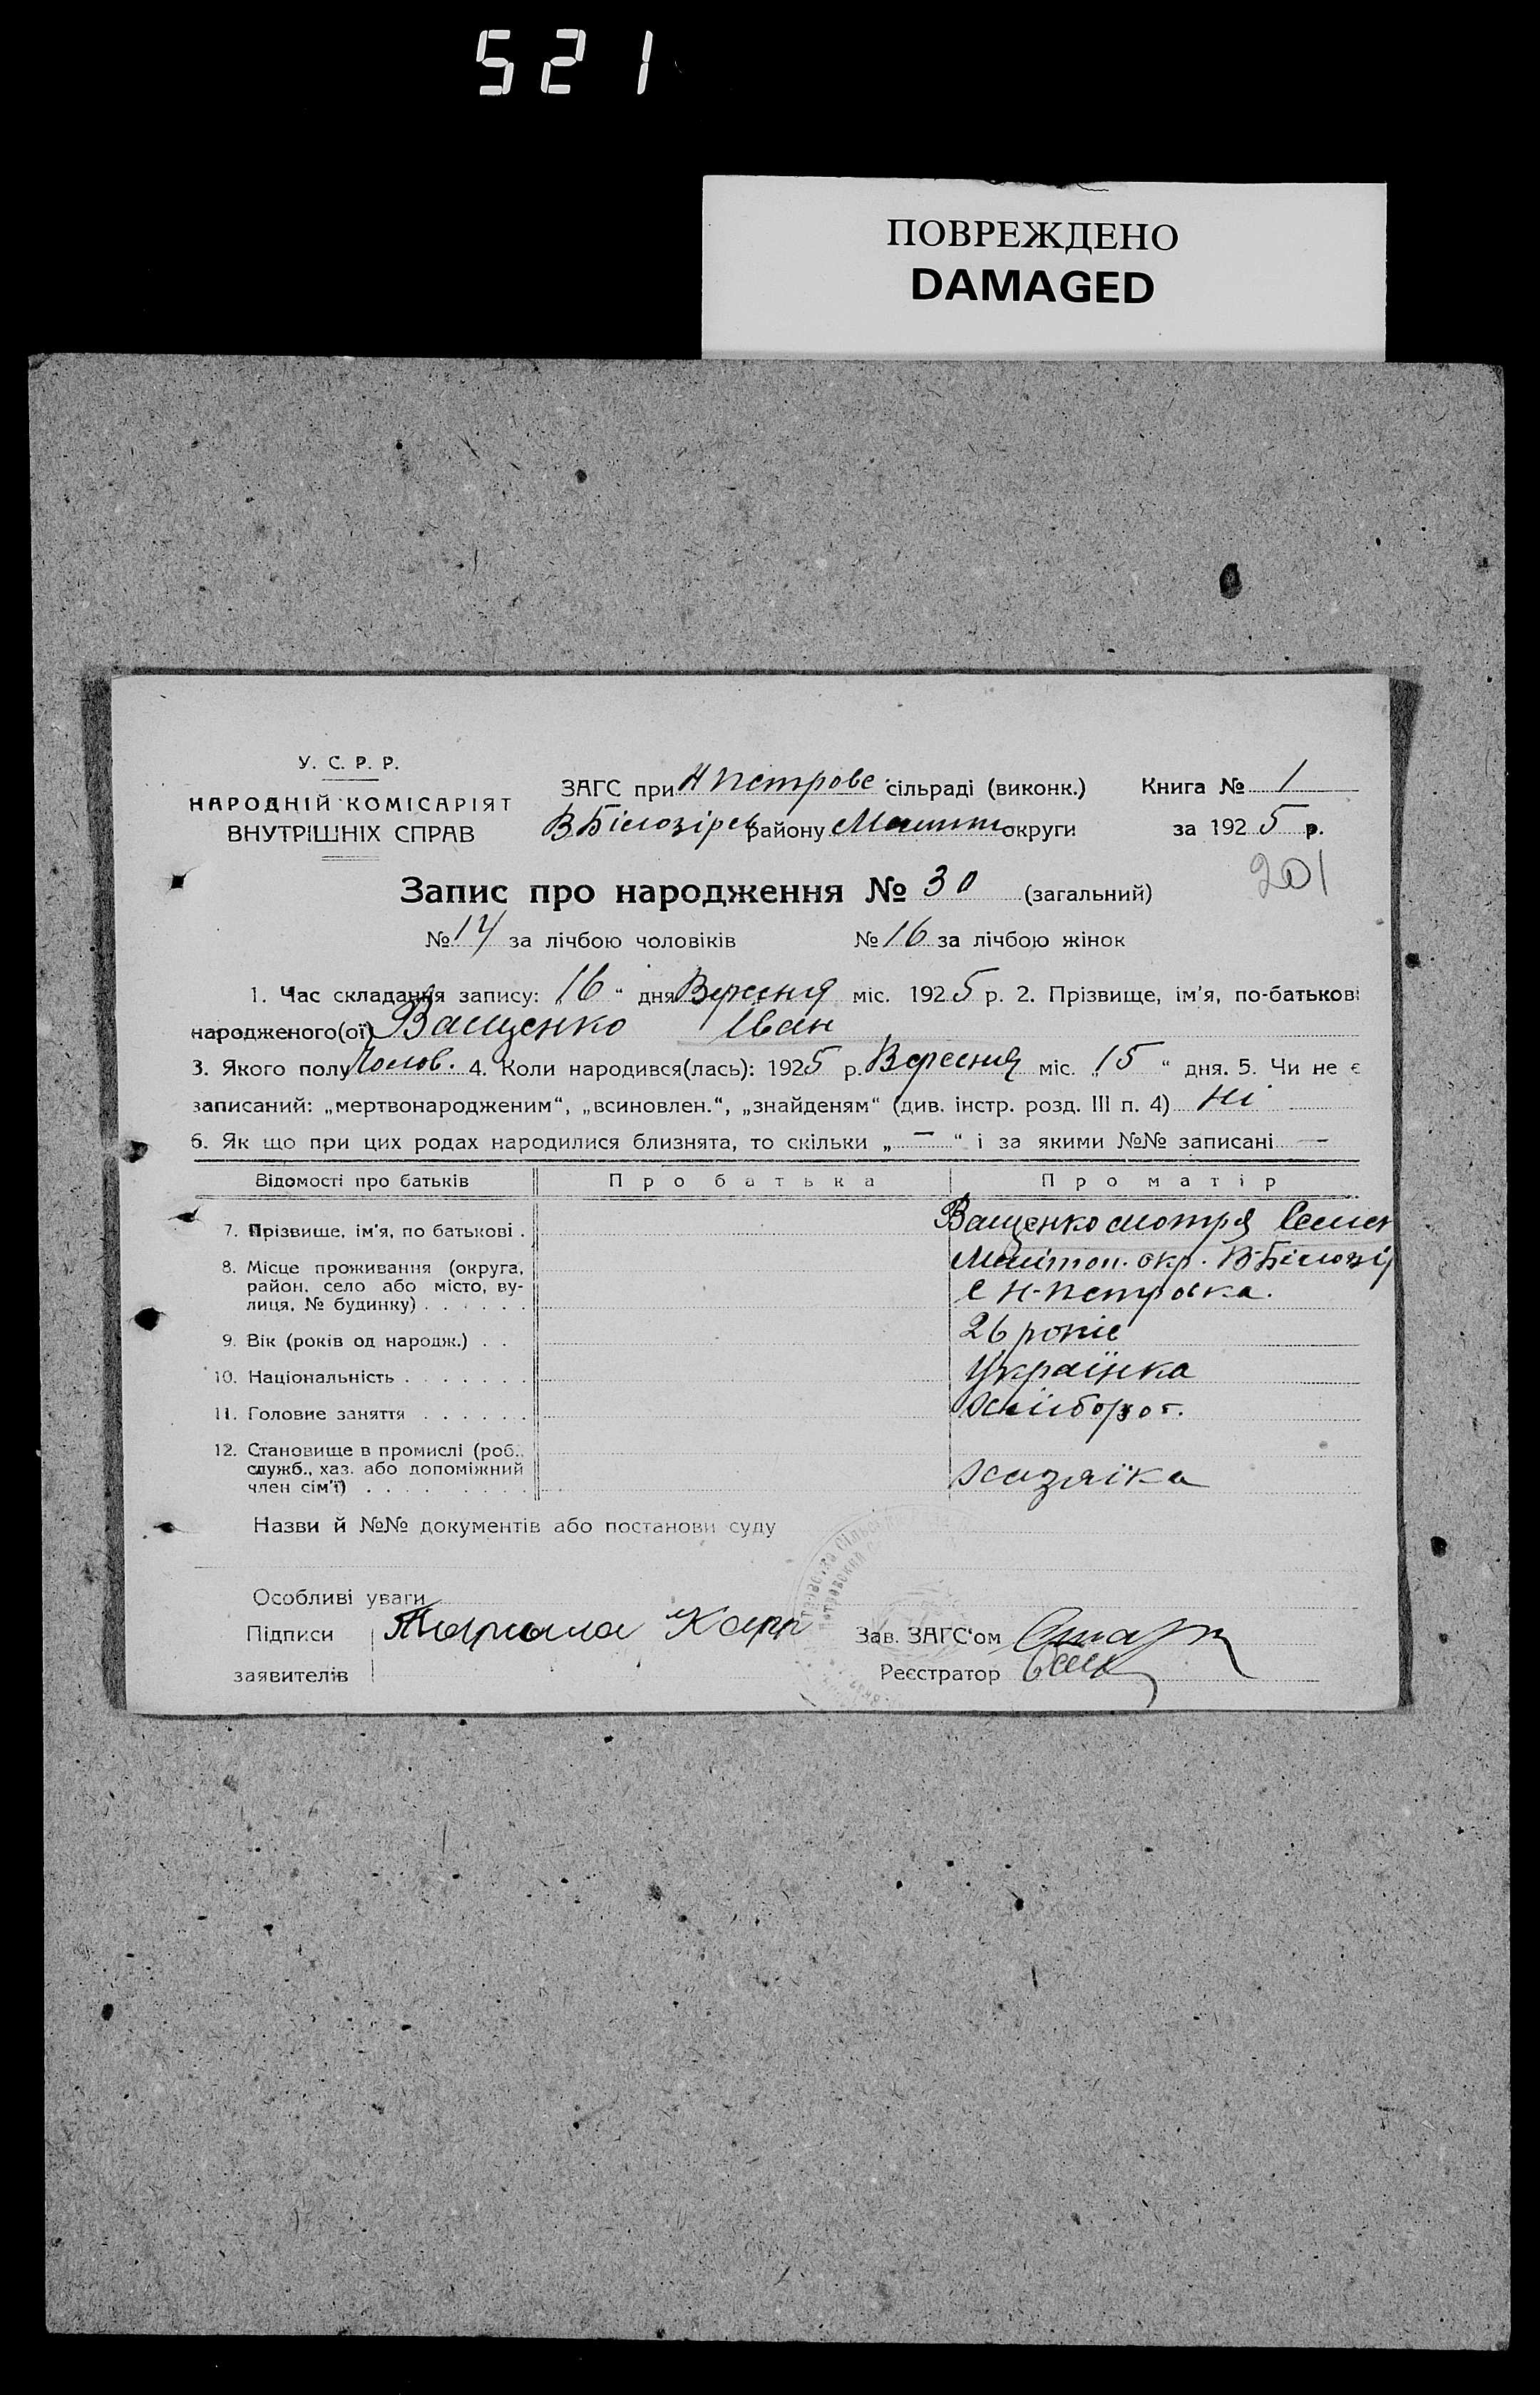 521
ПОВРЕЖДЕНО
DAMAGED
У. С. Р. Р.
НАРОДНІЙ КОМІСАРІЯТ
ВНУТРІШНІХ СПРАВ
ЗАГС при Н Петрове сільраді (виконк.) Книга № 1
В Білозірсь району Меліт округи за 1925 р.
201
Запис про народження № 30 (загальний)
№ 14 за лічбою чоловіків № 16 за лічбою жінок
1. Час складання запису: 16 “ дня Вересня міс. 1925 р. 2. Прізвище, ім'я, по-батькові
народженого(ої) Ващенко Іван
3. Якого полу Чолов. 4. Коли народився(лась): 1925 р. Вересня міс. „ 15 “ дня. 5. Чи не є
записаний: „мертвонародженим“, „всиновлен.“, „знайденям“ (див. інстр. розд. III п. 4) Ні
6. Як що при цих родах народилися близнята, то скільки „ — “ і за якими №№ записані —
Відомості про батьків Про батька Про матір
7. Прізвише, ім'я, по батькові . Ващенко Мотря Семен
8. Місце проживання (округа, Мелітоп. окр. В-Білозір
район, село або місто, ву- с Н-Петровка.
лиця, № будинку) . . . . . .
9. Вік (років од народж.) . . 26 років
10. Національність . . . . . . . Українка
11. Головне заняття . . . . . . Хлібороб.
12. Становище в промислі (роб.,
служб., хаз. або допоміжний Хазяїка
член сім'ї) . . . . . . . . .
Назви й №№ документів або постанови суду
Особливі уваги
Підписи Зав. ЗАГС'ом
заявителів Реєстратор